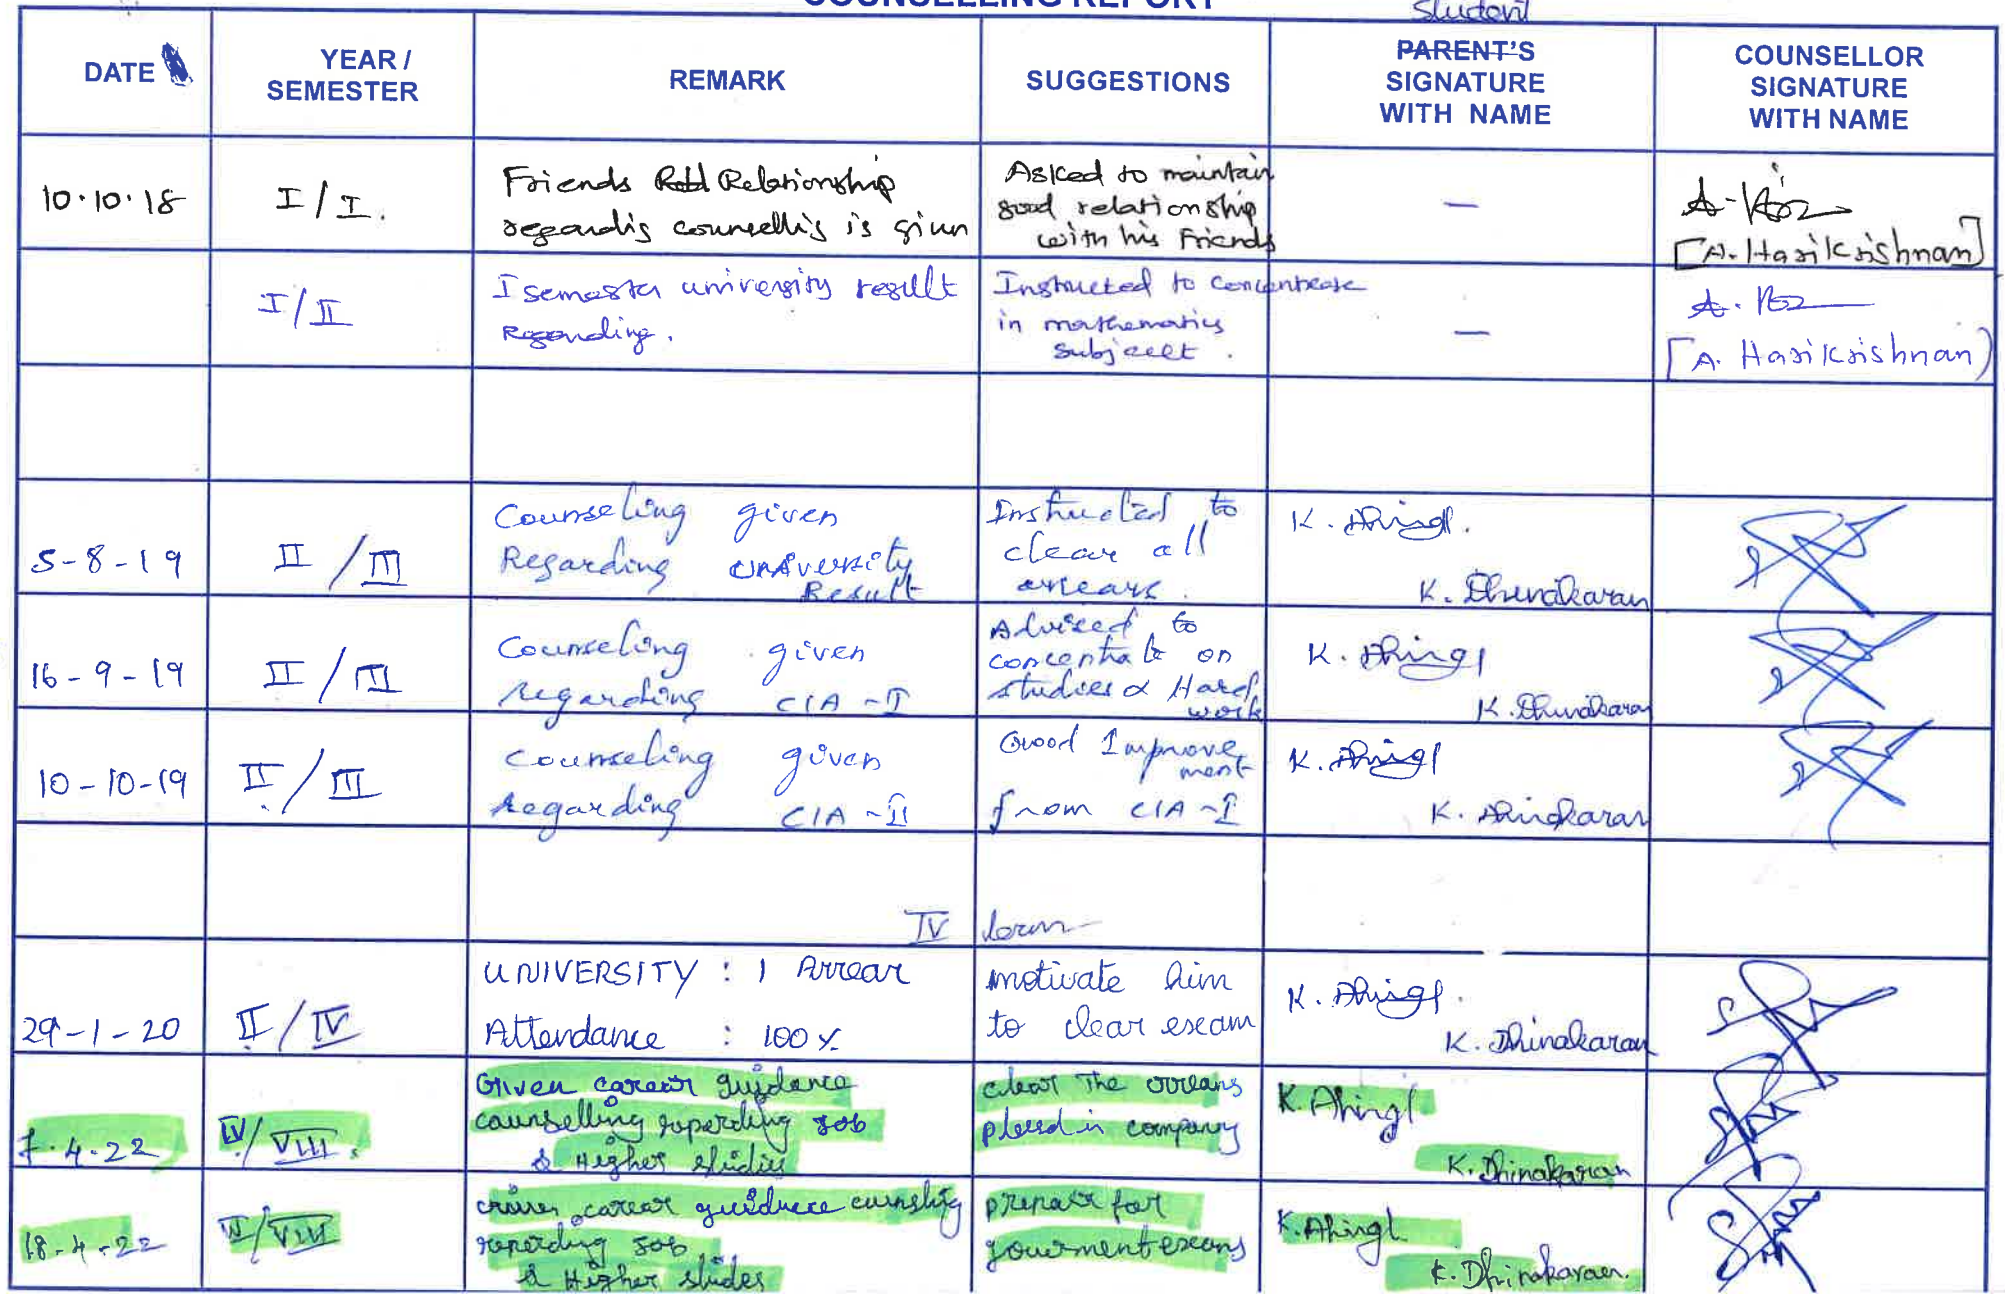 COUNSELLING REPORT
Student
DATE
YEAR /
SEMESTER
REMARK
SUGGESTIONS
PARENT'S
SIGNATURE
WITH NAME
COUNSELLOR
SIGNATURE
WITH NAME
10.10.18
I/I.
Friends Relationship
regardig counsellig is given
Asked to maintain
good relationship
with his Friends
—
[A. Harikrishnan]
I/II
I semester university result
Regarding.
Instructed to concentrate
in mathematics
subject.
—
[A. Harikrishnan]
5-8-19
II/III
Counseling given
Regarding university
Result
Instructed to
clear all
arrears.
K. Dhinakaran
16-9-19
II/III
Counseling given
regarding CIA-I
Advised to
concentrate on
studies & Hard
work
K. Dhinakaran
10-10-19
II/III
Counseling given
regarding CIA-II
Good Improve
ment
from CIA-I
K. Dhinakaran
IV
29-1-20
II/IV
UNIVERSITY : 1 Arrear
Attendance : 100%
motivate him
to clear exam
K. Dhinakaran
7.4.22
IV/VIII.
Given career guidance
counselling regerding Job
& Higher studies
clear The arrears
placed in company
K. Dhinakaran
18-4-22
IV/VIII
career guidance
regerding Job
& Higher studes
prepare for
government exams
K. Dhinakaran.